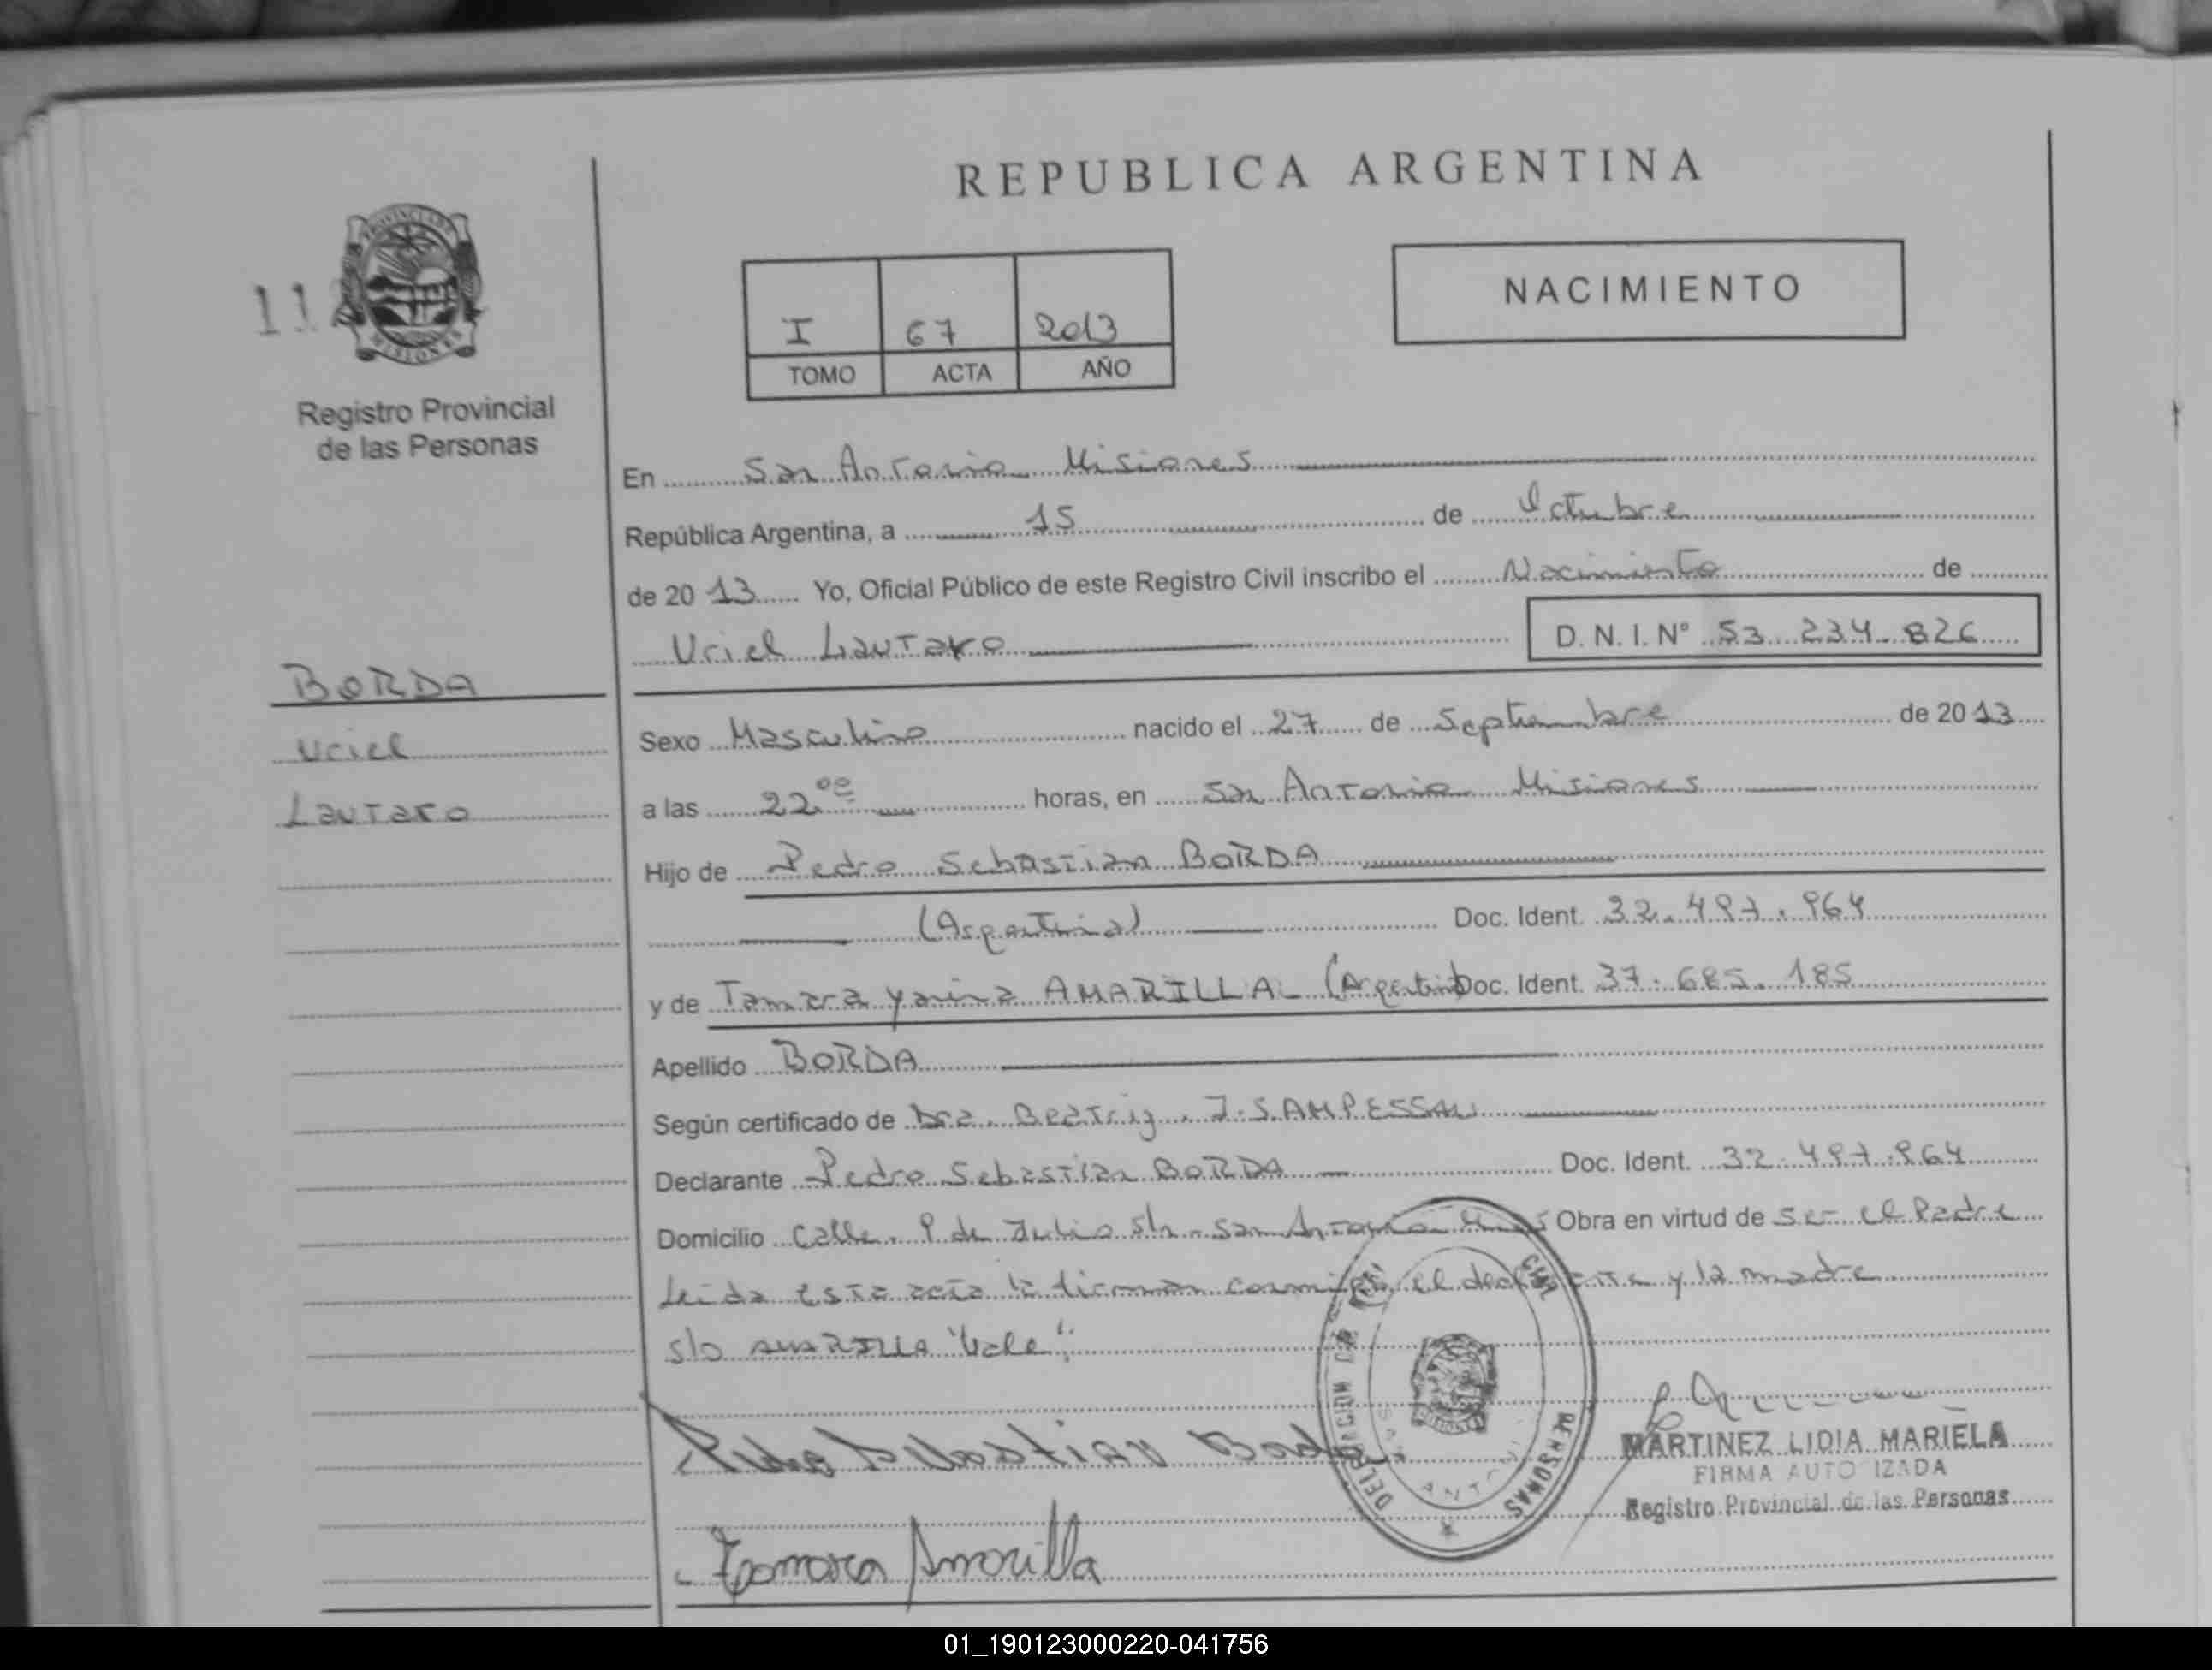 REPUBLICA ARGENTINA
NACIMIENTO
I 67 2013
TOMO ACTA AÑO
11
MISIONES
Registro Provincial
de las Personas
BORDA
Uriel
Lautaro
En San Antonio Misiones
República Argentina, a 15 de Octubre
de 2013 Yo, Oficial Público de este Registro Civil inscribo el Nacimiento de
Uriel Lautaro D.N.I.Nº 53.234.826
Sexo Masculino nacido el 27 de Septiembre de 2013
a las 22.00 horas, en San Antonio Misiones
Hijo de Pedro Sebastian BORDA
(Argentina) Doc. Ident. 32.497.964
y de Tamara Yanina AMARILLA (Argentina) Doc. Ident. 37.685.185
Apellido BORDA
Según certificado de Dra. Beatriz J. SAMPESSAU
Declarante Pedro Sebastian BORDA Doc. Ident. 32.497.964
Domicilio Calle 9 de Julio s/n - San Antonio Obra en virtud de ser el Padre
Leida esta acta la firman conmigo el declarante y la madre
s/o AMARILLA "Vale".
Pedro Sebastian Borda
Tamara Amarilla
DELEGACION PERSONAS
SAN ANTONIO
MARTINEZ LIDIA MARIELA
FIRMA AUTORIZADA
Registro Provincial de las Personas
01_190123000220-041756